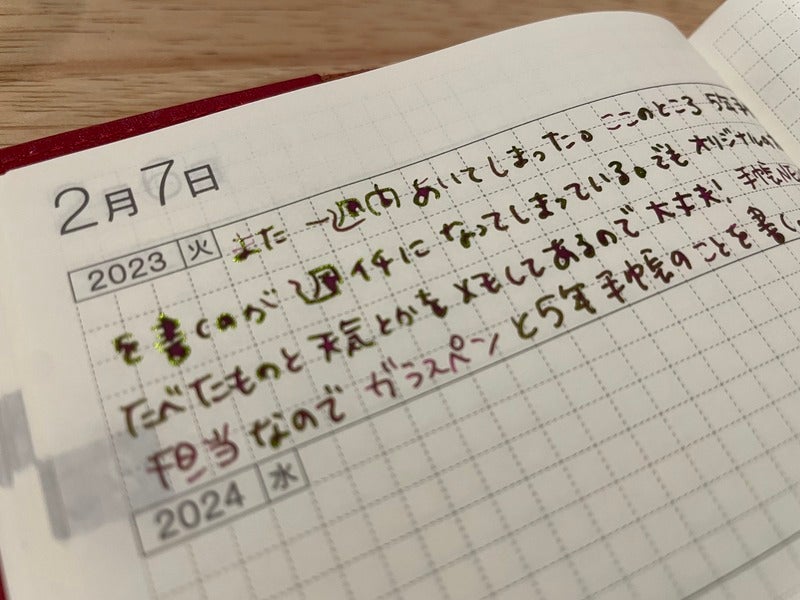 2月7日
2023 火 また一週間あいてしまった。ここのところ 5年手
を書くのが週イチになってしまっている。でもオリジナル
たべたものと天気とかをメモしてあるので大丈夫! 手帳
担当なので ガラスペンと5年手帳のことを書く
2024 水